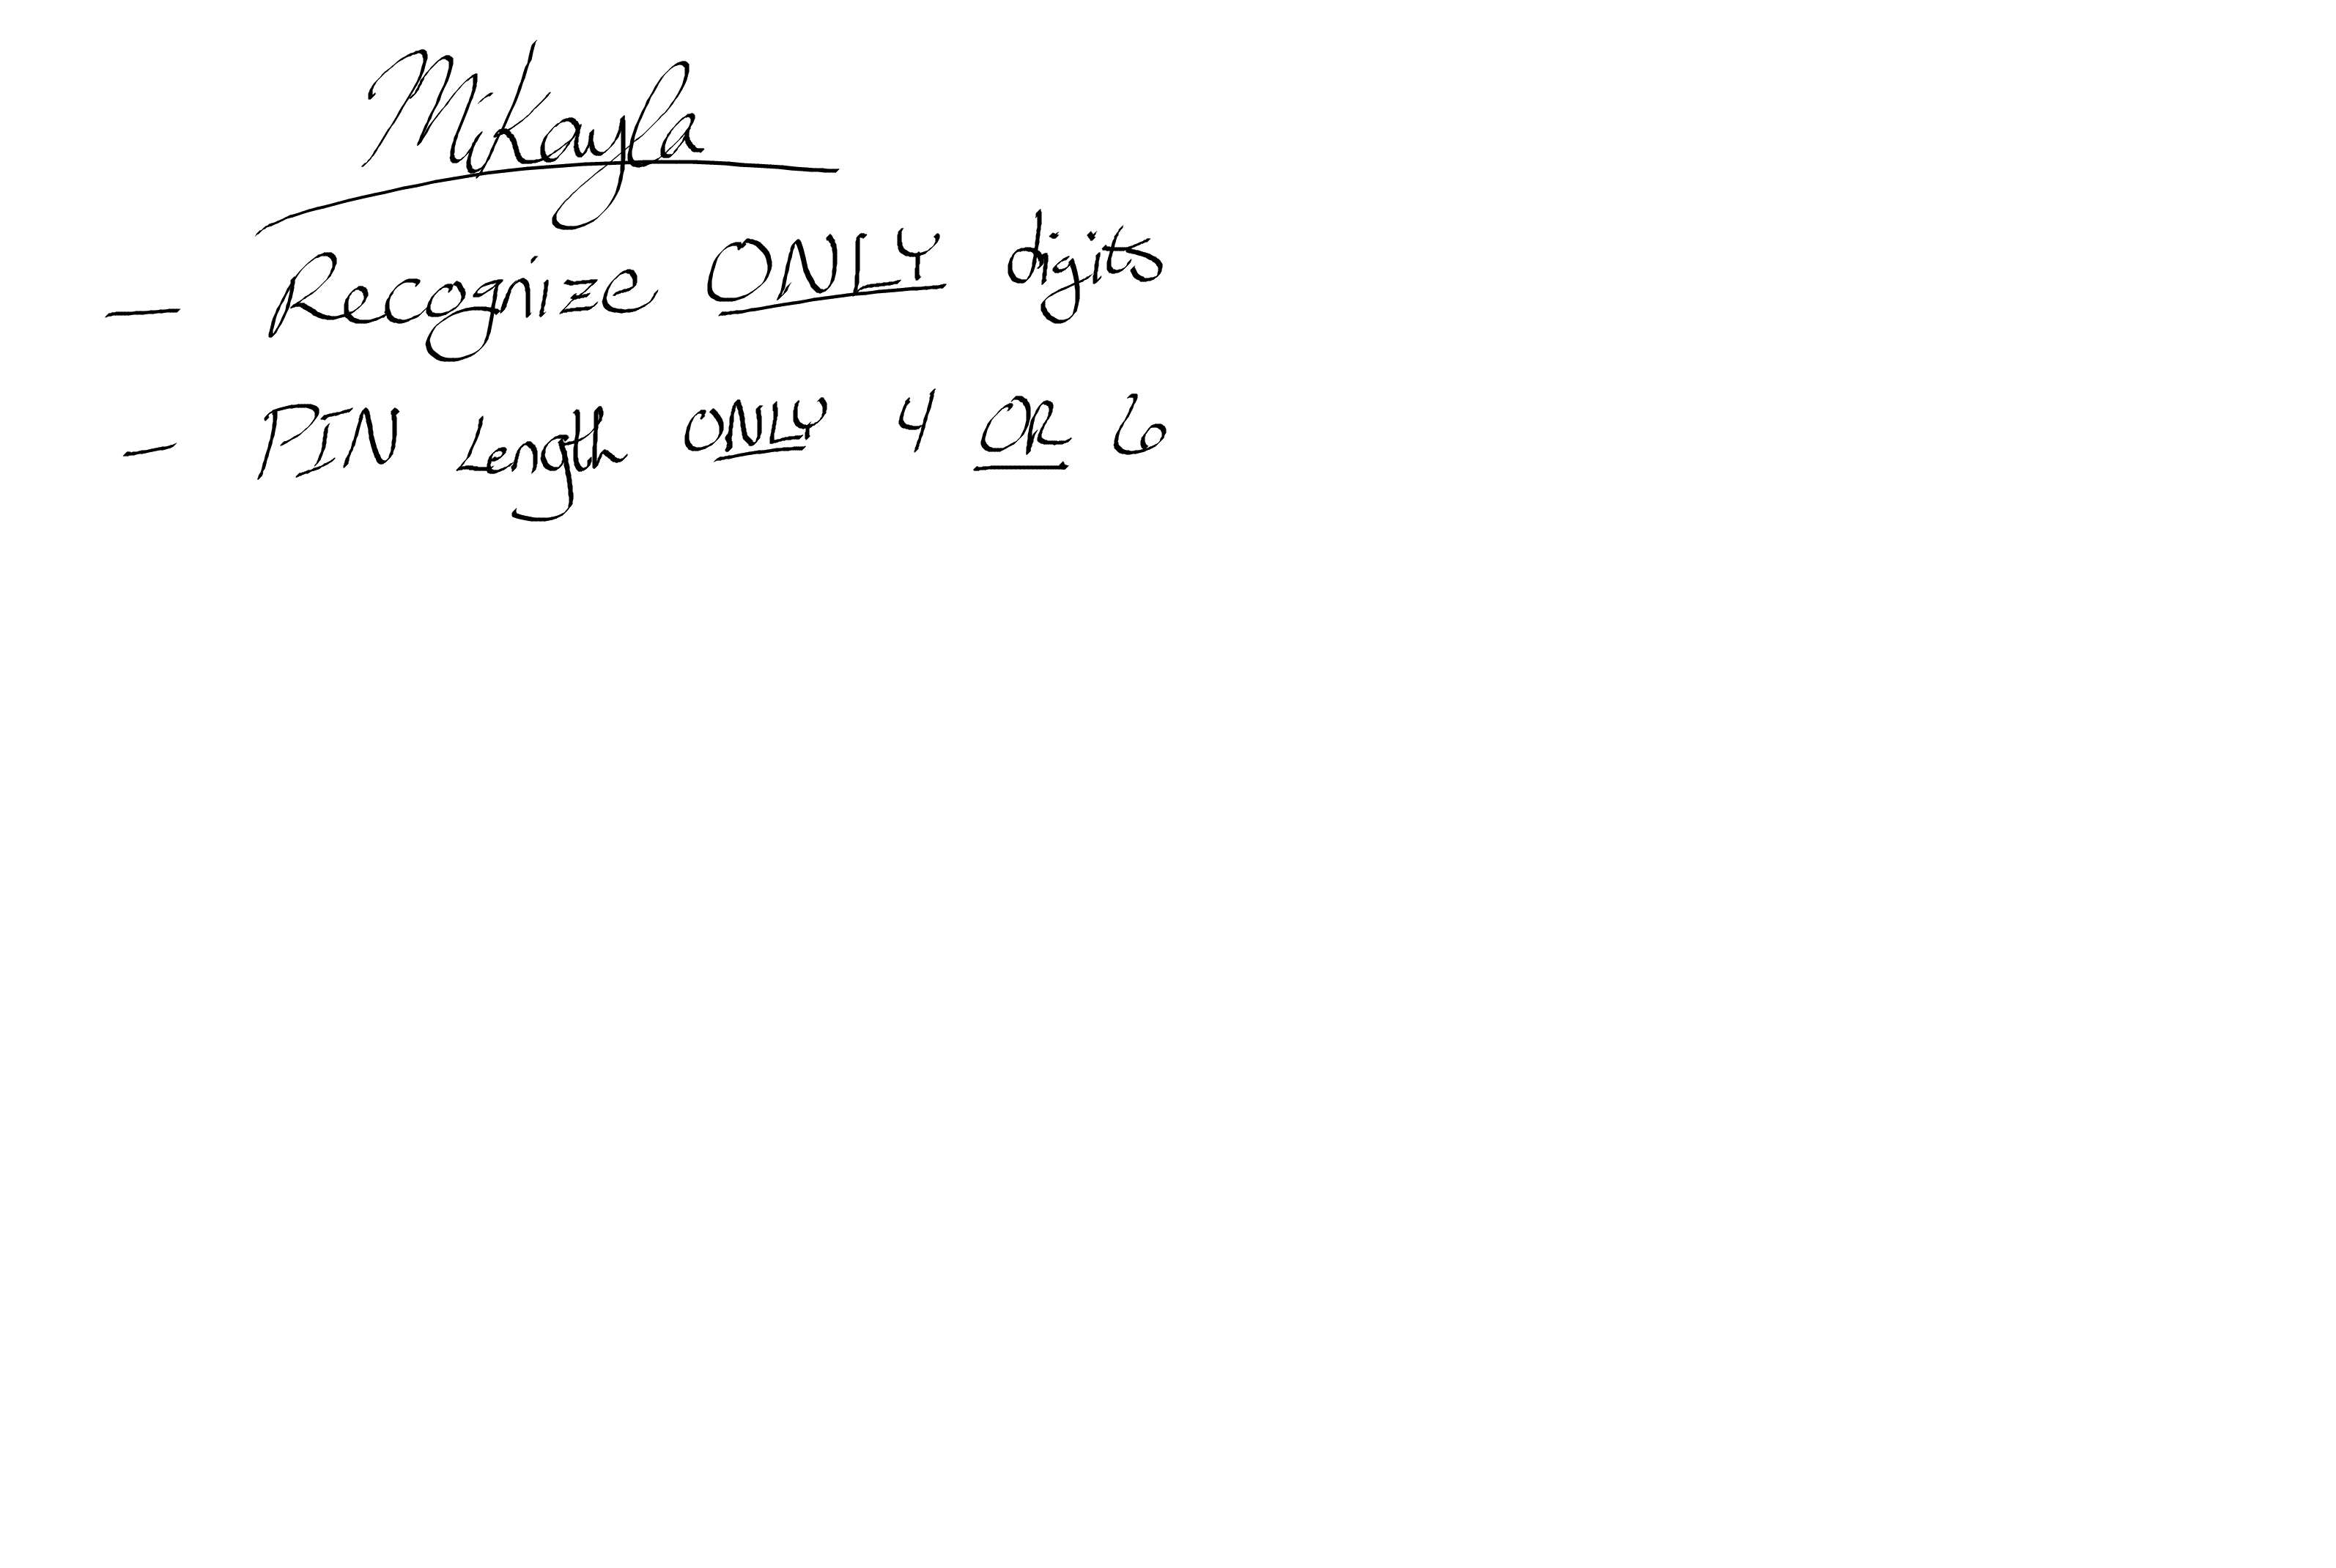 Mikayla
— Recognize ONLY digits
— PIN Length ONLY 4 OR 6